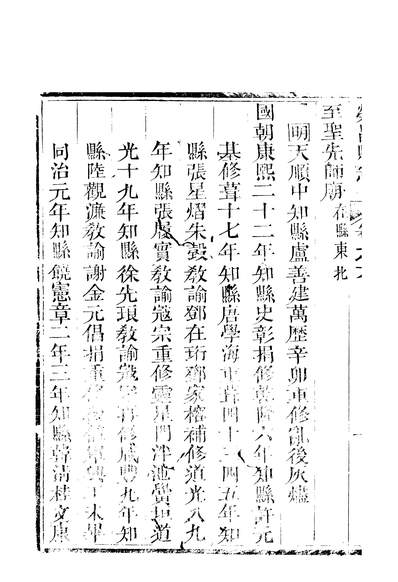 榮昌縣志
至聖先師廟在縣東北
明天順中知縣盧善建萬歷辛卯重修亂後灰燼
國朝康熙二十二年知縣史彰捐修乾隆六年知縣許元
基修葺十七年知縣唐學海重葺四十二四五年知
縣張星熠朱㲄教諭鄧在珩鄧家榕補修道光八九
年知縣張履實教諭寇宗重修霊星門泮池黌垣道
光十九年知縣徐先瑣教諭寇宗再修咸豐九年知
縣陸觀濂教諭謝金元倡捐重修
同治元年知縣饒憲章二年三年知縣韓清桂文康